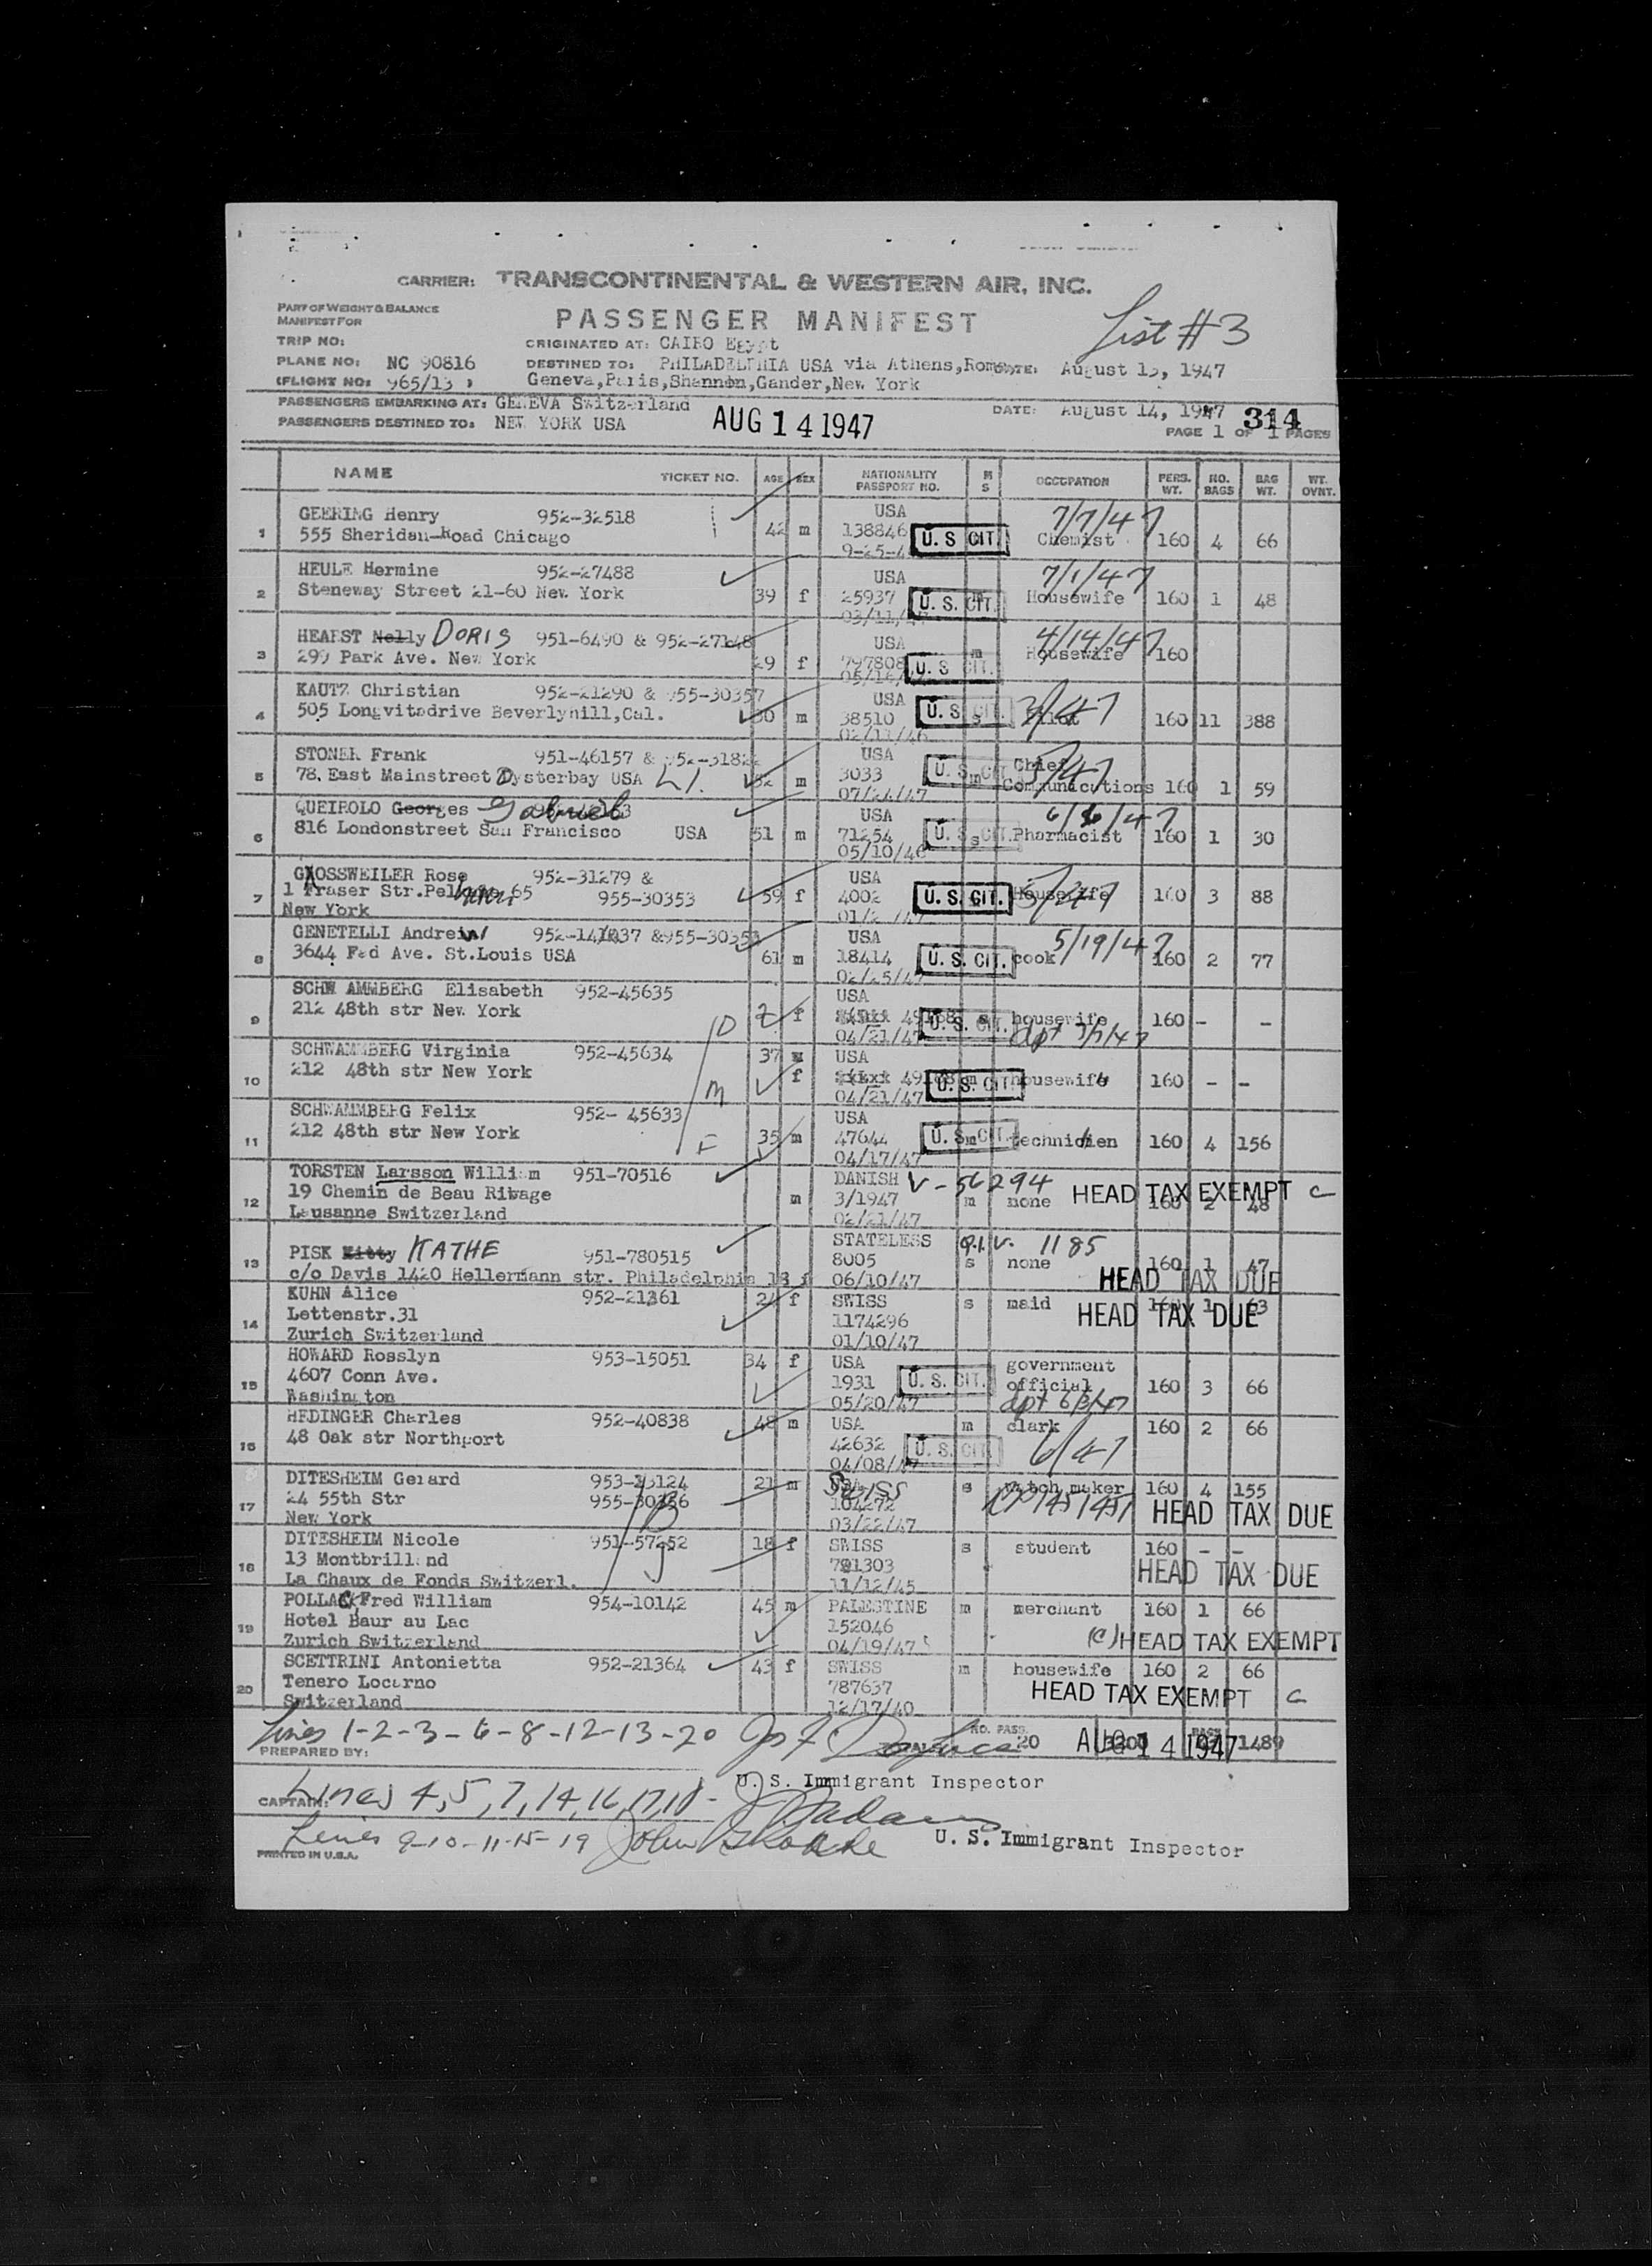 CARRIER: TRANSCONTINENTAL & WESTERN AIR, INC.
PART OF WEIGHT & BALANCE
MANIFEST FOR
PASSENGER MANIFEST
List #3
TRIP NO:
ORIGINATED AT: CAIRO Egypt
PLANE NO: NC 90816
DESTINED TO: PHILADELPHIA USA via Athens,Rome
DATE: August 13, 1947
(FLIGHT NO: 965/13 )
Geneva,Paris,Shannon,Gander,New York
PASSENGERS EMBARKING AT: GENEVA Switzerland
DATE: August 14, 1947 314
PASSENGERS DESTINED TO: NEW YORK USA
AUG 14 1947
PAGE 1 OF 1 PAGES
NAME TICKET NO. AGE SEX NATIONALITY PASSPORT NO. M S OCCUPATION PERS. WT. NO. BAGS BAG WT. WT. OVNT.
GEERING Henry 952-32518 USA 7/7/47
1 555 Sheridan-Road Chicago 42 m 138846 U. S CIT. Chemist 160 4 66
9-25-4
HEULE Hermine 952-27488 USA 7/1/47
2 Steneway Street 21-60 New York 39 f 25937 U. S. CIT. Housewife 160 1 48
03/11/47
HEARST Nelly DORIS 951-6490 & 952-27148 USA 4/14/47
3 299 Park Ave. New York 29 f 797808 U. S CIT. m Housewife 160
KAUTZ Christian 952-21290 & 955-30357 USA
4 505 Longvitadrive Beverlyhill,Cal. 30 m 38510 U. S CIT. s Pilot 160 11 388
02/11/46
STONER Frank 951-46157 & USA Chief
5 78, East Mainstreet Oysterbay USA L.I. m 3033 U. S CIT m Communications 160 1 59
07/24/47
QUEIROLO Georges Gabriel USA 6/6/47
6 816 Londonstreet San Francisco USA 51 m 71254 U. S CIT. s Pharmacist 160 1 30
05/10/46
GROSSWEILER Rose 952-31279 & USA
7 1 Fraser Str. 65 955-30353 59 f 4002 U. S. CIT. Housewife 160 3 88
New York
GENETELLI Andrew &955-30353 USA 5/19/47
8 3644 Fad Ave. St.Louis USA 61 m 18414 U. S. CIT. cook 160 2 77
02/25/47
SCHWAMMBERG Elisabeth 952-45635 USA
9 212 48th str New York D f U. S. CIT. s housewife 160 - -
04/21/47 dpt 3/7/47
SCHWAMMBERG Virginia 952-45634 37 m USA
10 212 48th str New York M f U. S. CIT. m housewife 160 - -
04/21/47
SCHWAMMBERG Felix 952- 45633 USA
11 212 48th str New York F 35 m 47644 U. S. CIT. m technicien 160 4 156
04/17/47
TORSTEN Larsson William 951-70516 DANISH V-56294
12 19 Chemin de Beau Rivage m 3/1947 m none HEAD TAX EXEMPT C 160 2 48
Lausanne Switzerland 02/21/47
STATELESS Q.I.V. 1185
13 PISK Kitty KATHE 951-780515 8005 s none 160 1 47
c/o Davis 1420 Hellermann str. Philadelphia 18 f 06/10/47 HEAD TAX DUE
KUHN Alice 952-21361 24 f SWISS s maid 160 1 63
14 Lettenstr.31 1174296 HEAD TAX DUE
Zurich Switzerland 01/10/47
HOWARD Rosslyn 953-15051 34 f USA government
15 4607 Conn Ave. 1931 U. S. CIT. official 160 3 66
Washington 05/20/47 dpt 6/3/47
HEDINGER Charles 952-40838 48 m USA m clark 160 2 66
16 48 Oak str Northport 42632 U. S. CIT. 6/47
04/08/47
DITESHEIM Gerard 953-23124 21 m Swiss s watch maker 160 4 155
17 24 55th Str 955-30356 B 104272 HEAD TAX DUE
New York 03/22/47
DITESHEIM Nicole 951-57252 18 f SWISS s student 160 - -
18 13 Montbrilland 781303 HEAD TAX DUE
La Chaux de Fonds Switzerl. 11/12/45
POLLACK Fred William 954-10142 45 m PALESTINE m merchant 160 1 66
19 Hotel Baur au Lac 152046
Zurich Switzerland 04/19/47 (C) HEAD TAX EXEMPT
SCETTRINI Antonietta 952-21364 43 f SWISS m housewife 160 2 66
20 Tenero Locarno 787637 HEAD TAX EXEMPT C
Switzerland 12/17/40
Lines 1-2-3-6-8-12-13-20
NO. PASS. 20 3200 AUG 14 1947 1489
PREPARED BY:
U. S. Immigrant Inspector
CAPTAIN: Lines 4,5,7,14,16,17,18-
Lines 9-10-11-15-19 John
U. S. Immigrant Inspector
PRINTED IN U.S.A.